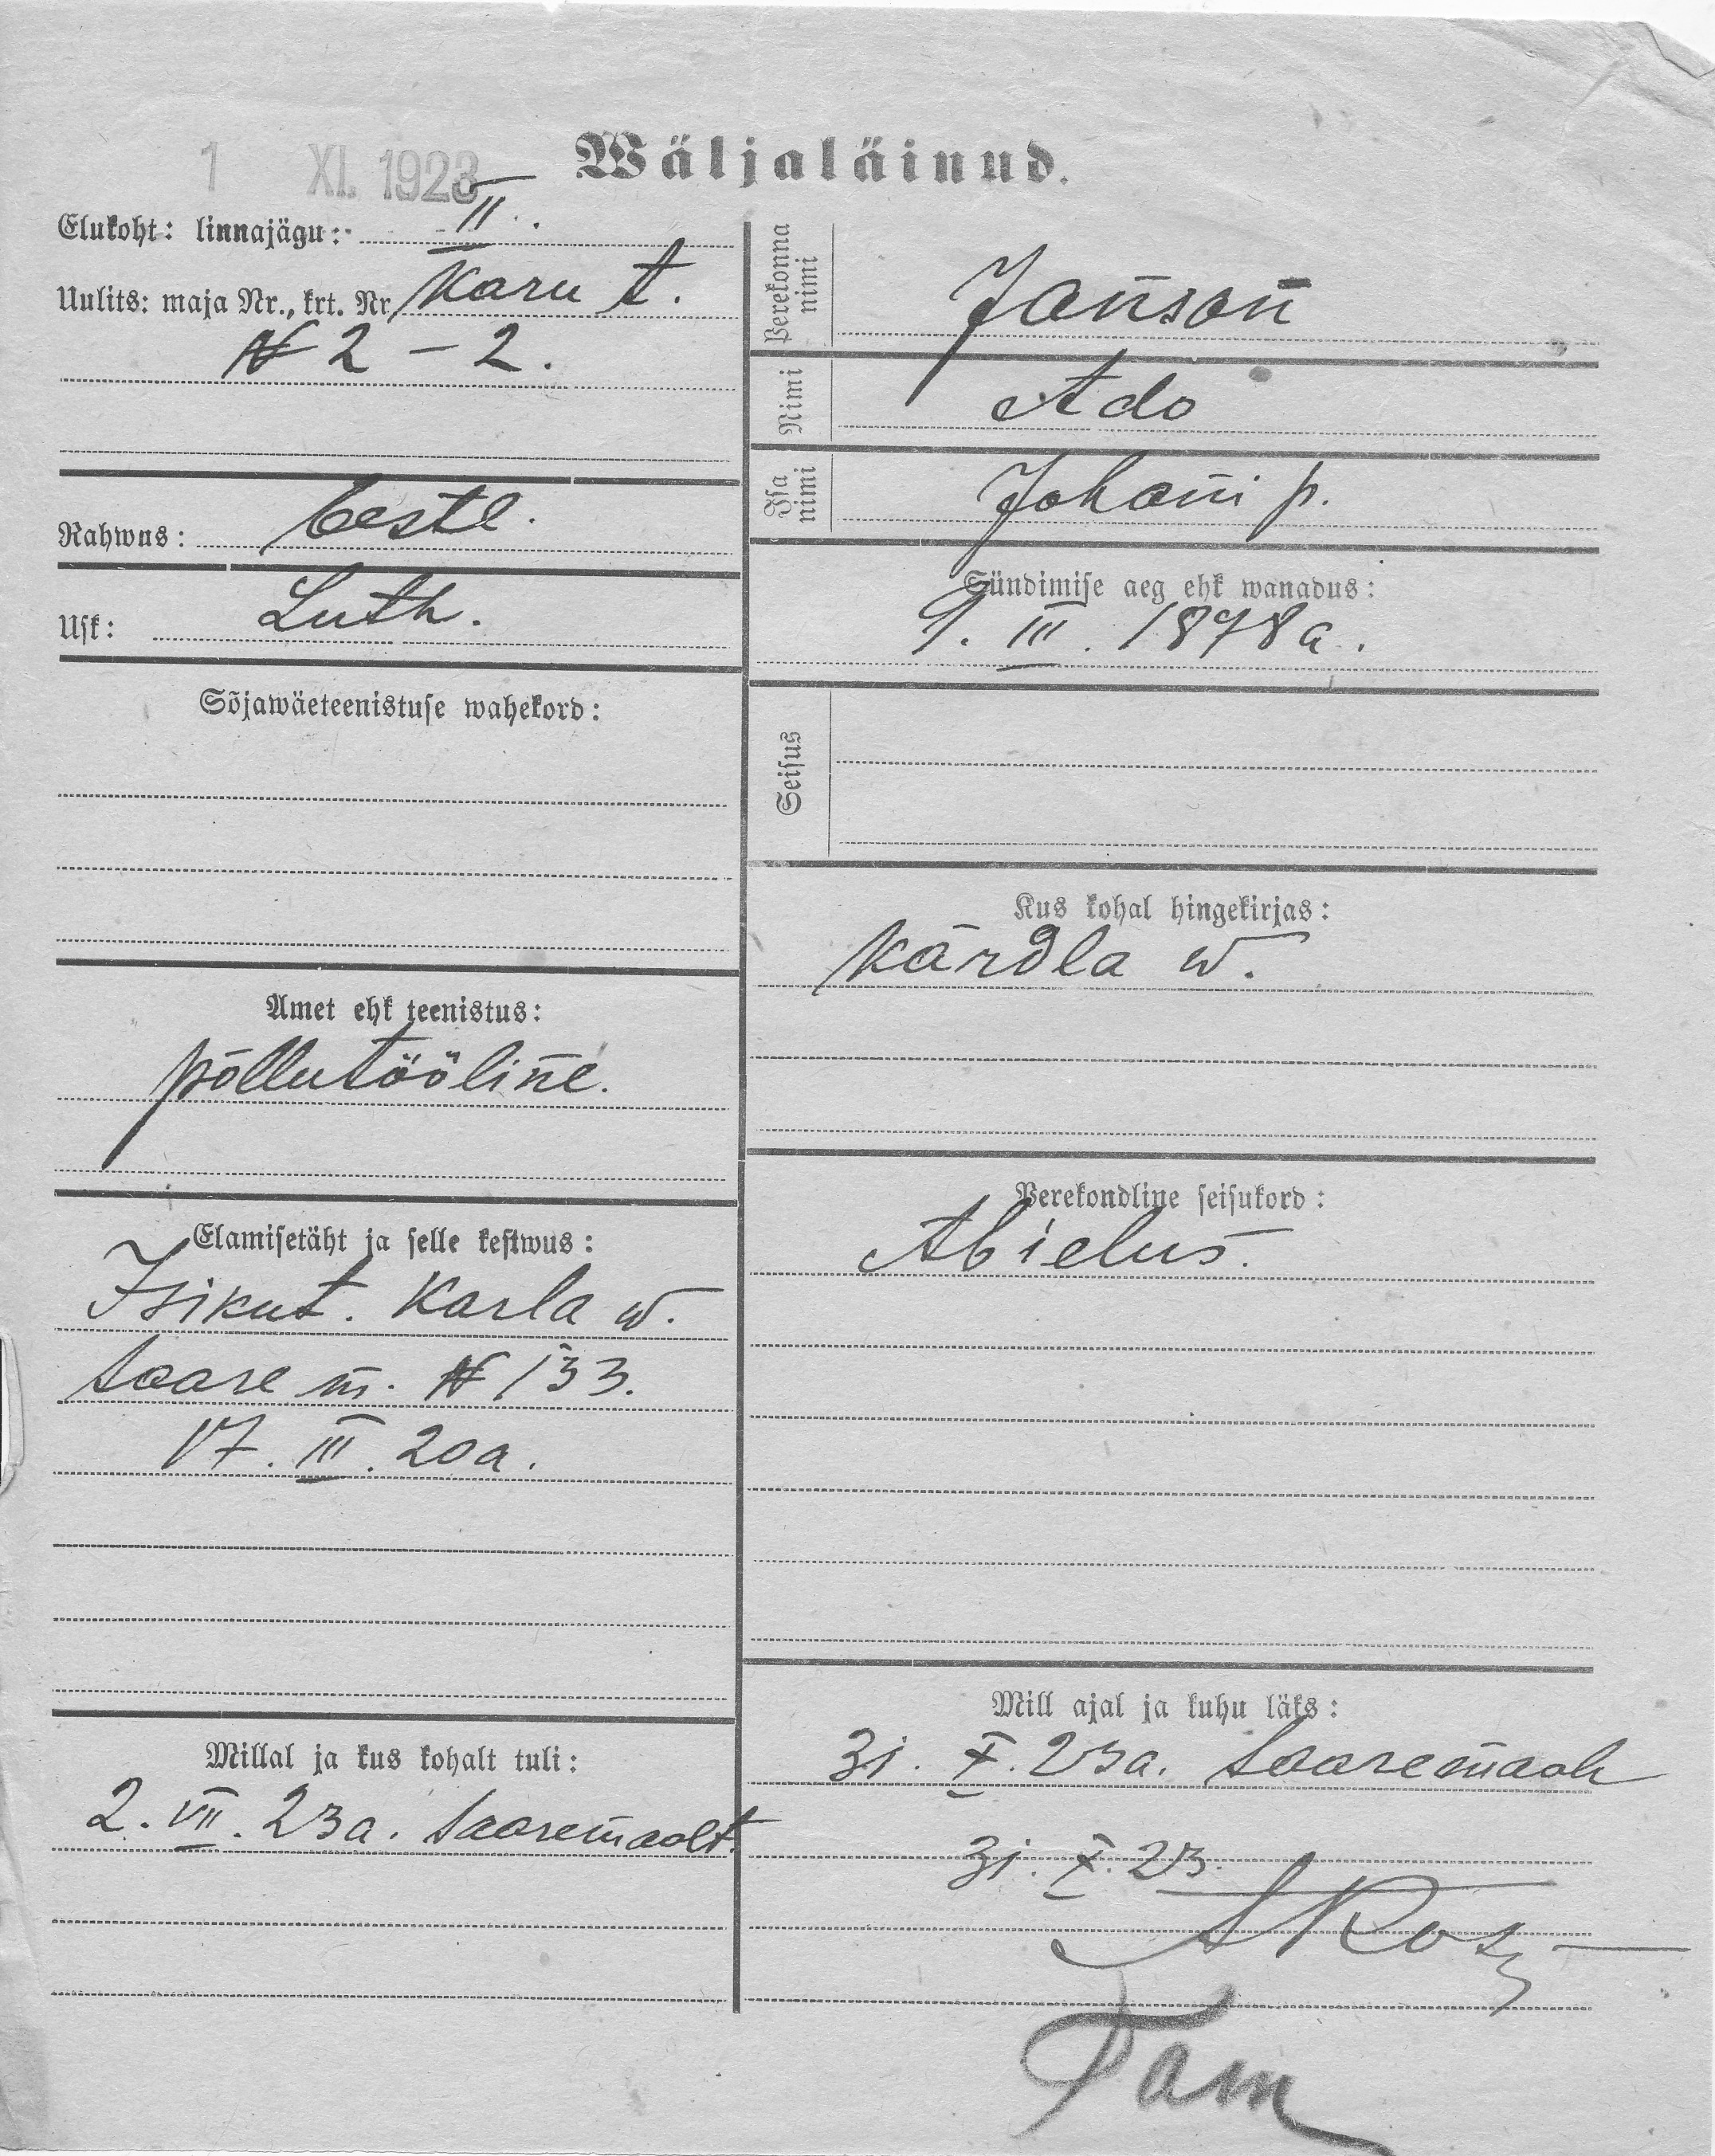 1 XI. 1923
Wäljaläinud.
Elukoht: linnajägu: II.
Uulits: maja Nr., krt. Nr. Karu t.
N 2 – 2.
Rahwus: Eestl.
Usk: Luth.
Sõjawäeteenistuse wahekord:
Amet ehk teenistus:
põllutööline.
Elamisetäht ja selle kestwus:
Isikut. Karla w.
Saare m. N 133.
17. III. 20 a.
Millal ja kus kohalt tuli:
2. VII. 23 a. Saaremaalt.
Perekonna nimi
Janson
Nimi
Ado
Isa nimi
Johani p.
Sündimise aeg ehk wanadus:
9. III. 1878 a.
Seisus
Kus kohal hingekirjas:
Kärdla w.
Perekondline seisukord:
Abielus.
Mill ajal ja kuhu läks:
31. X. 23 a. Saaremaale
31. X. 23.
Tam